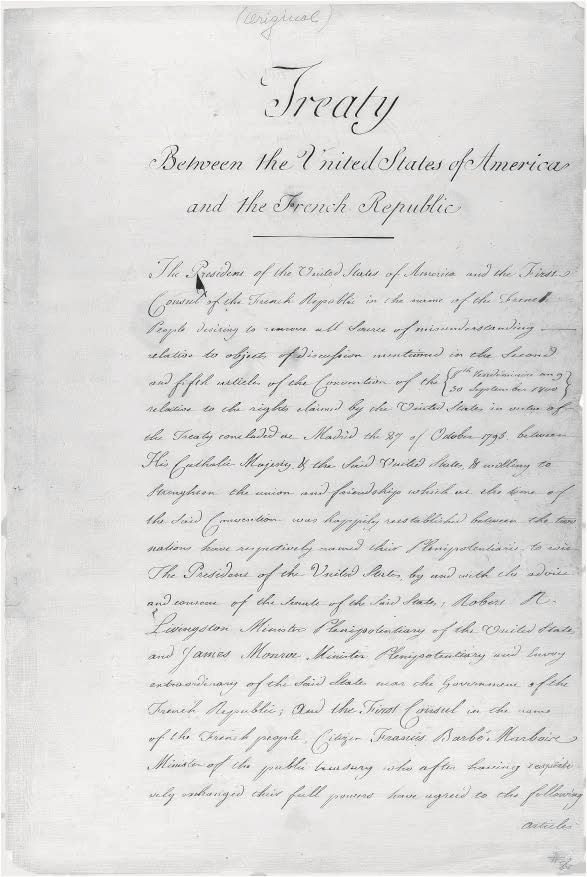 (Original)
Treaty
Between the United States of America
and the French Republic
The President of the United States of America and the First
Consul of the French Republic in the name of the French
People desiring to remove all Source of misunderstanding
relative to objects of discussion mentioned in the Second
and fifth articles of the Convention of the {8th Vendémiaire an 9
30 September 1800}
relative to the rights claimed by the United States in virtue of
the Treaty concluded at Madrid the 27 of October 1795, between
His Catholic Majesty, & the Said United States, & willing to
Strengthen the union and friendship which at the time of
the Said Convention was happily reestablished between the two
nations have respectively named their Plenipotentiaries, to wit
The President of the United States, by and with the advice
and consent of the Senate of the Said States; Robert R.
Livingston Minister Plenipotentiary of the United States
and James Monroe Minister Plenipotentiary and Envoy
extraordinary of the Said States near the Government of the
French Republic; And the First Consul in the name
of the French people, Citizen Francis Barbé Marbois
Minister of the public treasury who after having respecti-
vely exchanged their full powers have agreed to the following
articles